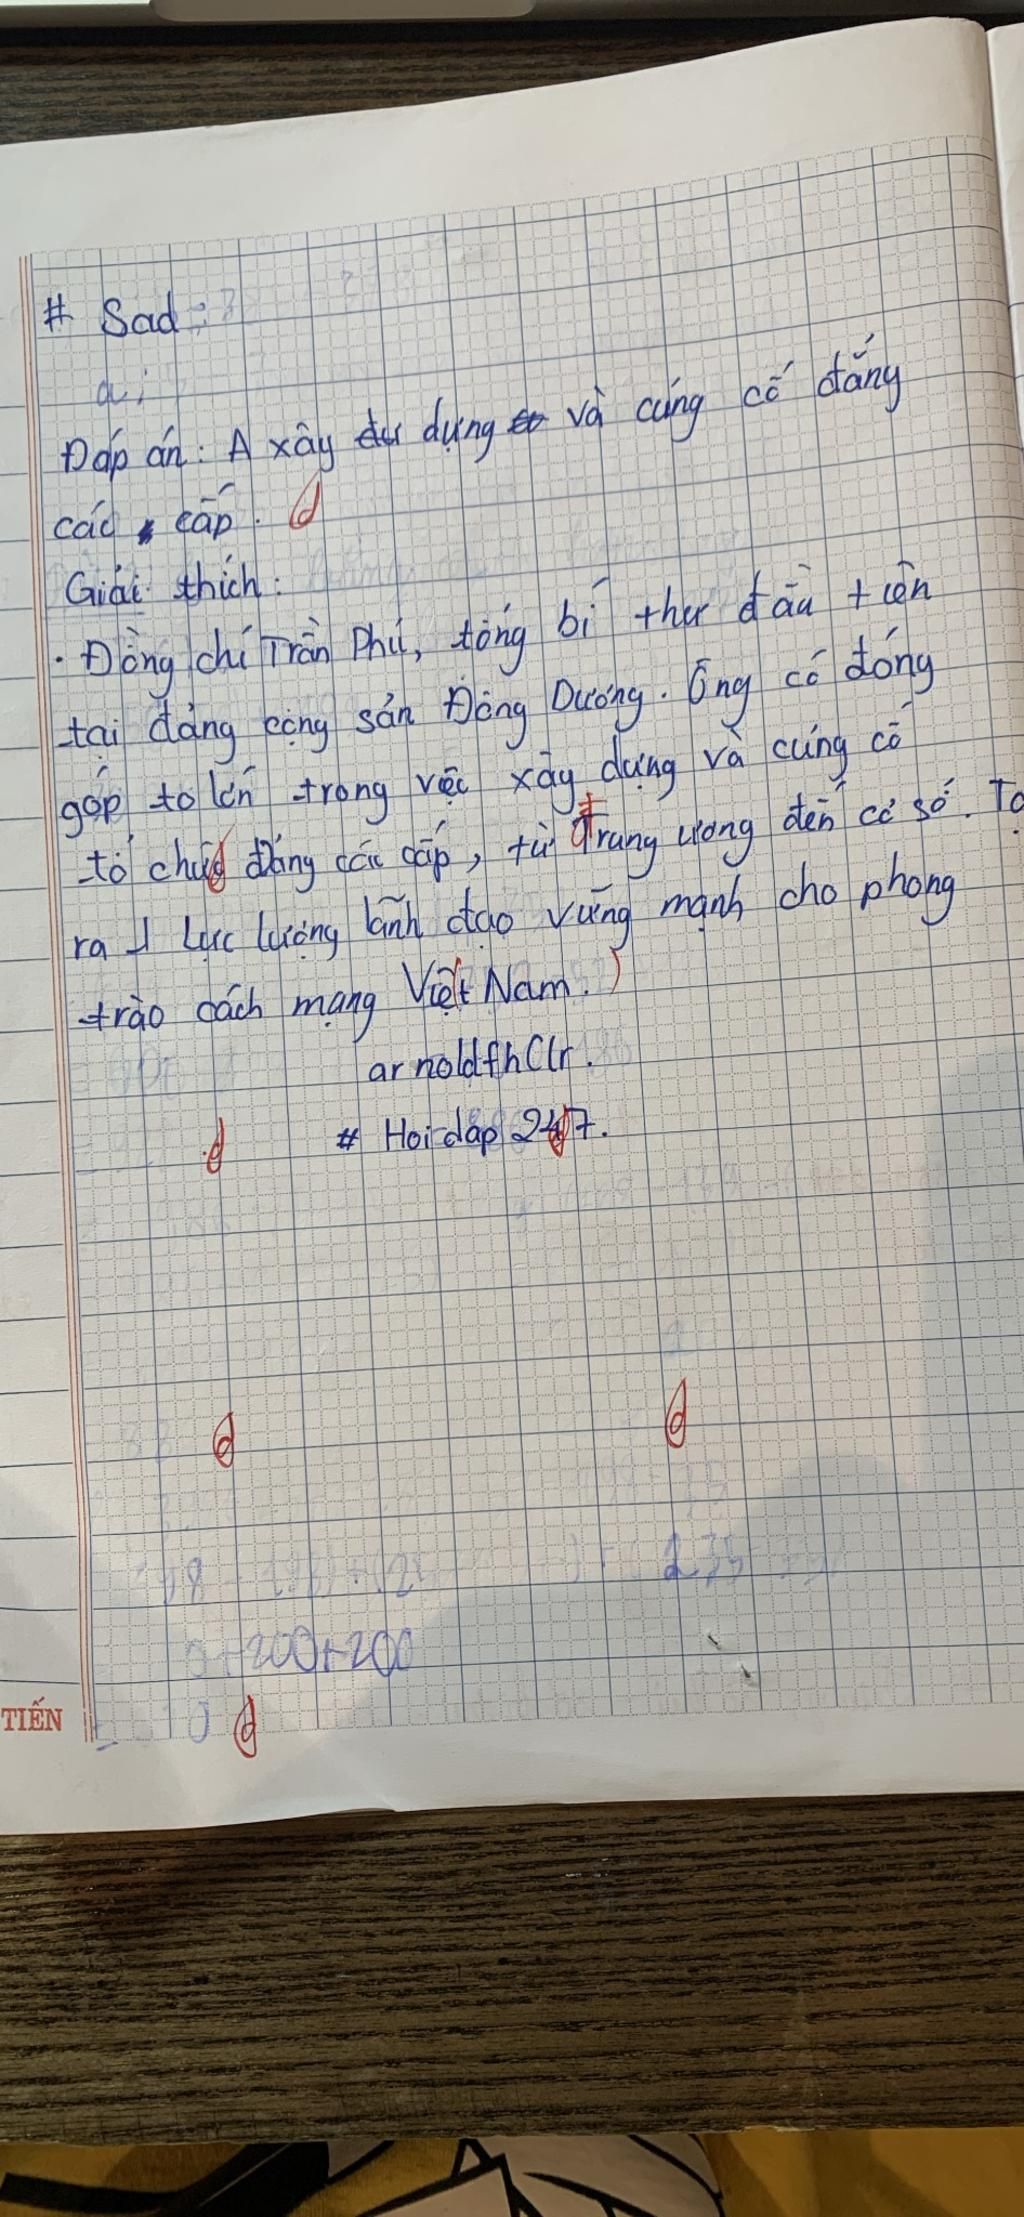 # Sad:
a:
Đáp án: A xây dựng và củng cố đảng
các cấp.
Giải thích:
. Đồng chí Trần Phú, tổng bí thư đầu tiên
tại đảng cộng sản Đông Dương. Ông có đóng
góp to lớn trong vệc xây dựng và củng cố
tổ chức đảng các cấp, từ trung ương đến cơ sở. Tạ
ra 1 lực lượng lãnh đạo vững mạnh cho phong
trào cách mạng Việt Nam.
arnoldfhClr.
# Hoidap 247.
+200+200
TIẾN